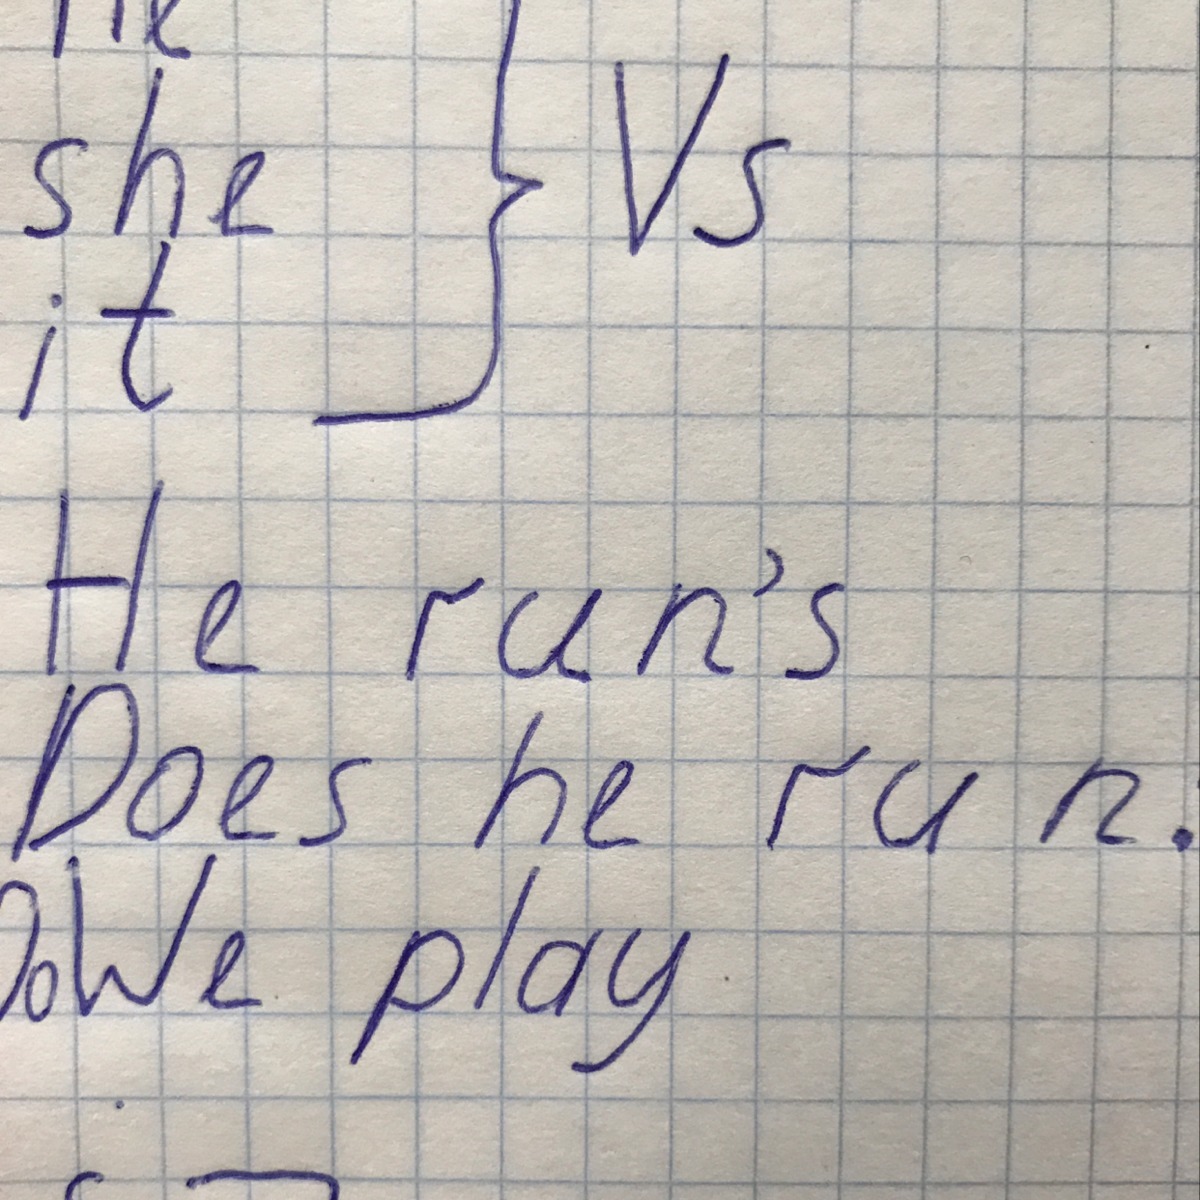 he
she } Vs
it
He run's
Does he run.
Do We play